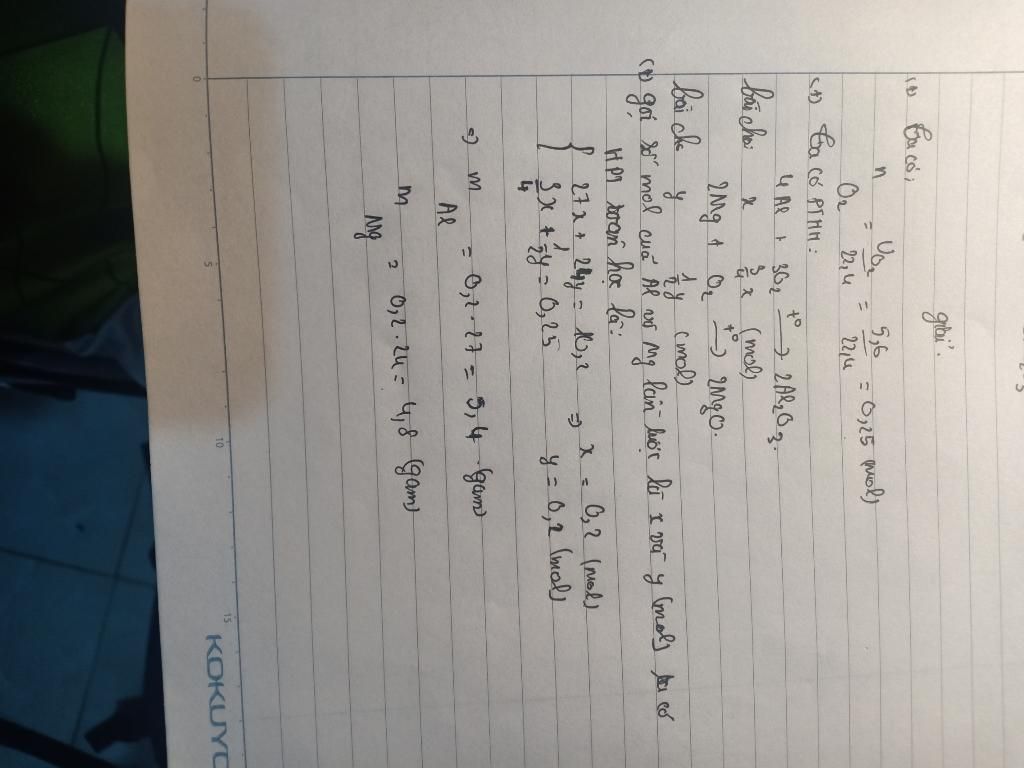 giải.
(*) Ta có:
n O₂ = V O₂ / 22,4 = 5,6 / 22,4 = 0,25 (mol)
(*) Ta có PTHH:
4Al + 3O₂ —t°→ 2Al₂O₃.
bài cho x 3/4 x (mol)
2Mg + O₂ —t°→ 2MgO.
bài cho y 1/2 y (mol)
(*) gọi số mol của Al và Mg lần lượt là x và y (mol) ta có
HPT toán học là:
{ 27x + 24y = 10,2 ⇒ x = 0,2 (mol)
{ 3/4 x + 1/2 y = 0,25 y = 0,2 (mol)
⇒ m Al = 0,2 . 27 = 5,4 (gam)
m Mg = 0,2 . 24 = 4,8 (gam)
0 5 10 15
KOKUYO